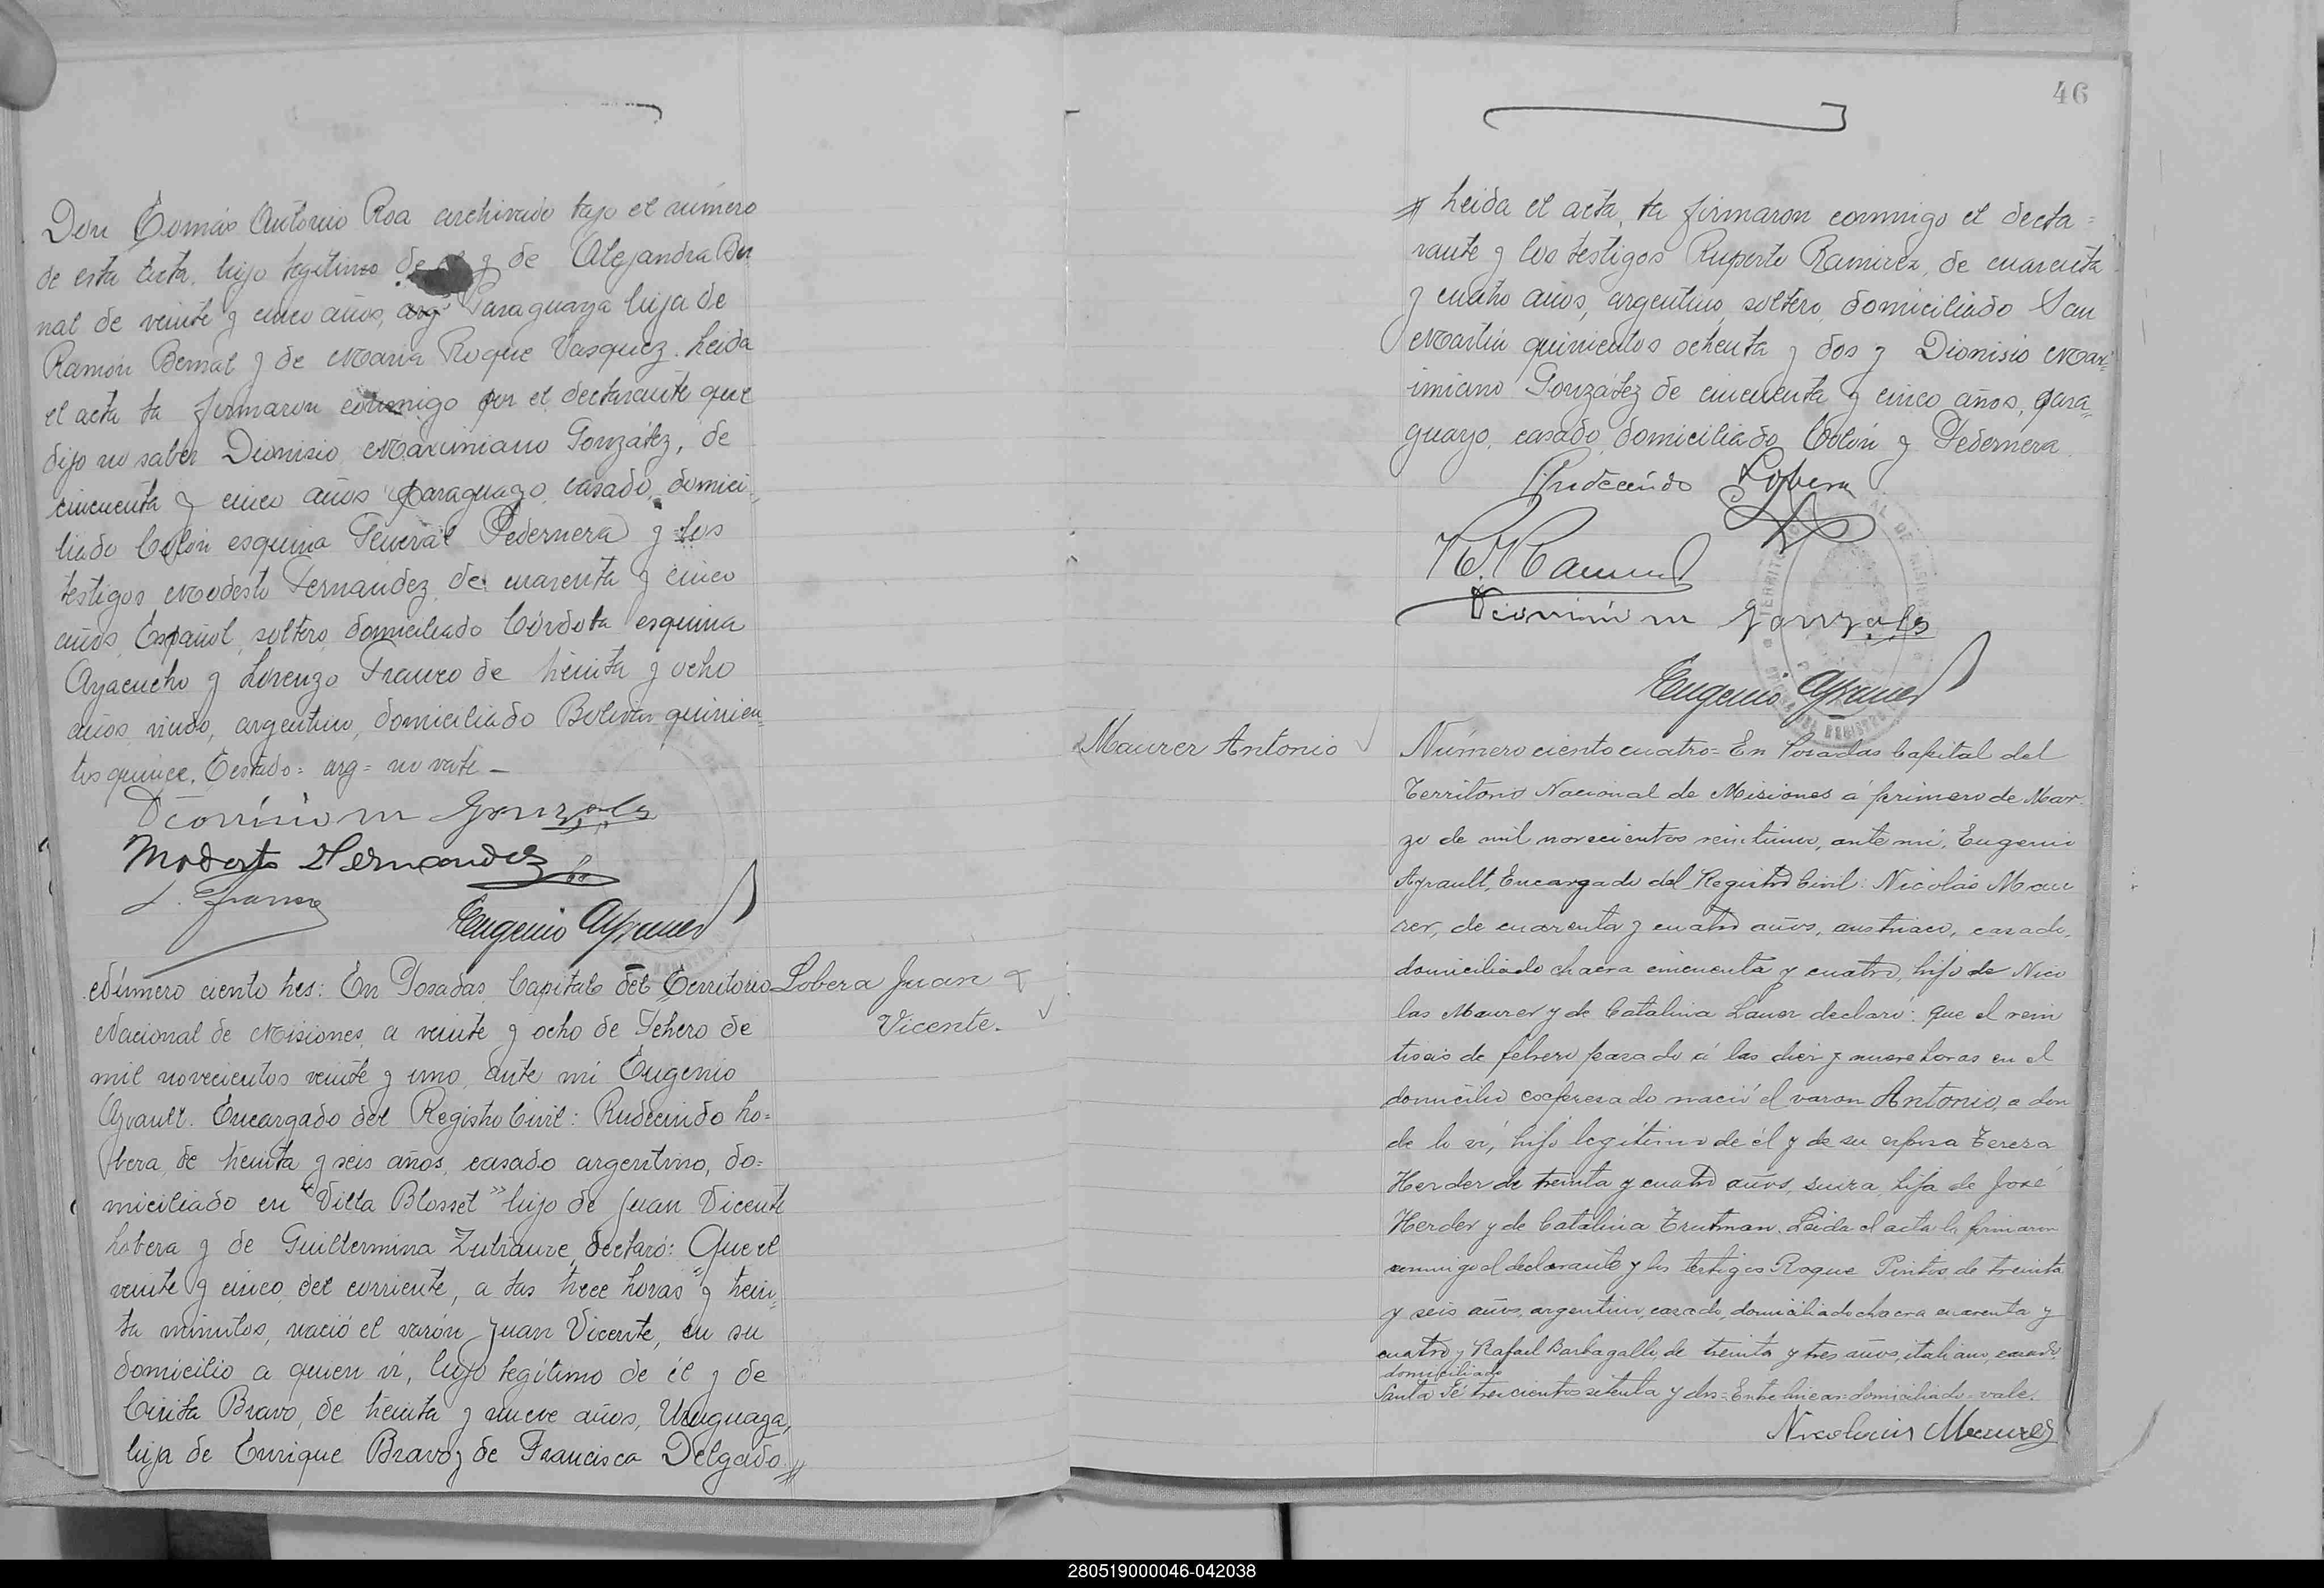 Don Tomás Antonio Roa archivado bajo el número
de esta acta. hijo legítimo de él y de Alejandra Ber
nal de veinte y cinco años, arg Paraguaya hija de
Ramón Bernal y de Maria Roque Vasquez. Leida
el acta la firmaron conmigo por el declarante que
dijo no saber Dionisio Maximiano González, de
cincuenta y cinco años Paraguayo, casado, domici-
liado Colón esquina General Pedernera y los
testigos Modesto Fernandez de cuarenta y cinco
años, Español, soltero, domiciliado Córdoba esquina
Ayacucho y Lorenzo Franco de treinta y ocho
años, viudo, argentino, domiciliado Bolivar quinien
tos quince. Testado: arg = no vale —
Dionisio M Gonzales
Modesto Fernandez
L. Franco
Eugenio Ayrault
Número ciento tres: En Posadas, Capital del Territorio
Nacional de Misiones, a veinte y ocho de Febrero de
mil novecientos veinte y uno, ante mi Eugenio
Ayrault. Encargado del Registro Civil: Rudecindo Lo=
bera, de treinta y seis años, casado argentino, do=
miciliado en "Villa Blosset" hijo de Juan Vicente
Lobera y de Guillermina declaró: Que el
veinte y cinco del corriente, a las trece horas y trein-
ta minutos, nació el varón Juan Vicente, en su
domicilio a quien ví, hijo legítimo de él y de
Cirita Bravo, de treinta y nueve años, Uruguaya,
hija de Enrique Bravo y de Francisca Delgado #
Lobera Juan
Vicente.
46
# Leida el acta, la firmaron conmigo el decla=
rante y los testigos Ruperto Ramirez, de cuarenta
y cuatro años, argentino, soltero, domiciliado San
Martín quinientos ochenta y dos y Dionisio Max-
imiano González de cincuenta y cinco años, para-
guayo, casado, domiciliado Colón y Pedernera
Rudecindo Lobera
R. Ramirez
Dionisio M Gonzales
Eugenio Ayrault
Maurer Antonio
Número ciento cuatro = En Posadas Capital del
Territorio Nacional de Misiones á primero de Mar-
zo de mil novecientos veintiuno, ante mí, Eugenio
Ayrault, Encargado del Registro Civil: Nicolás Mau
rer, de cuarenta y cuatro años, austriaco, casado,
domiciliado chacra cincuenta y cuatro, hijo de Nico
las Maurer y de Catalina Lauer declaró: que el vein
tiseis de febrero pasado á las diez y nueve horas en el
domicilio expresado nació el varon Antonio, a don
de lo ví, hijo legítimo de él y de su esposa Teresa
Herder de treinta y cuatro años, suiza, hija de José
Herder y de Catalina Trutman. Leida el acta la firmaron
conmigo el declarante y los testigos Roque Pintos, de treinta
y seis años, argentino, casado, domiciliado chacra cuarenta y
cuatro y Rafael Barbagallo, de treinta y tres años, italiano, casado,
domiciliado
Santa Fé trescientos setenta y dos = Entre lineas = domiciliado = vale.
Nicolaus Maurer
280519000046-042038